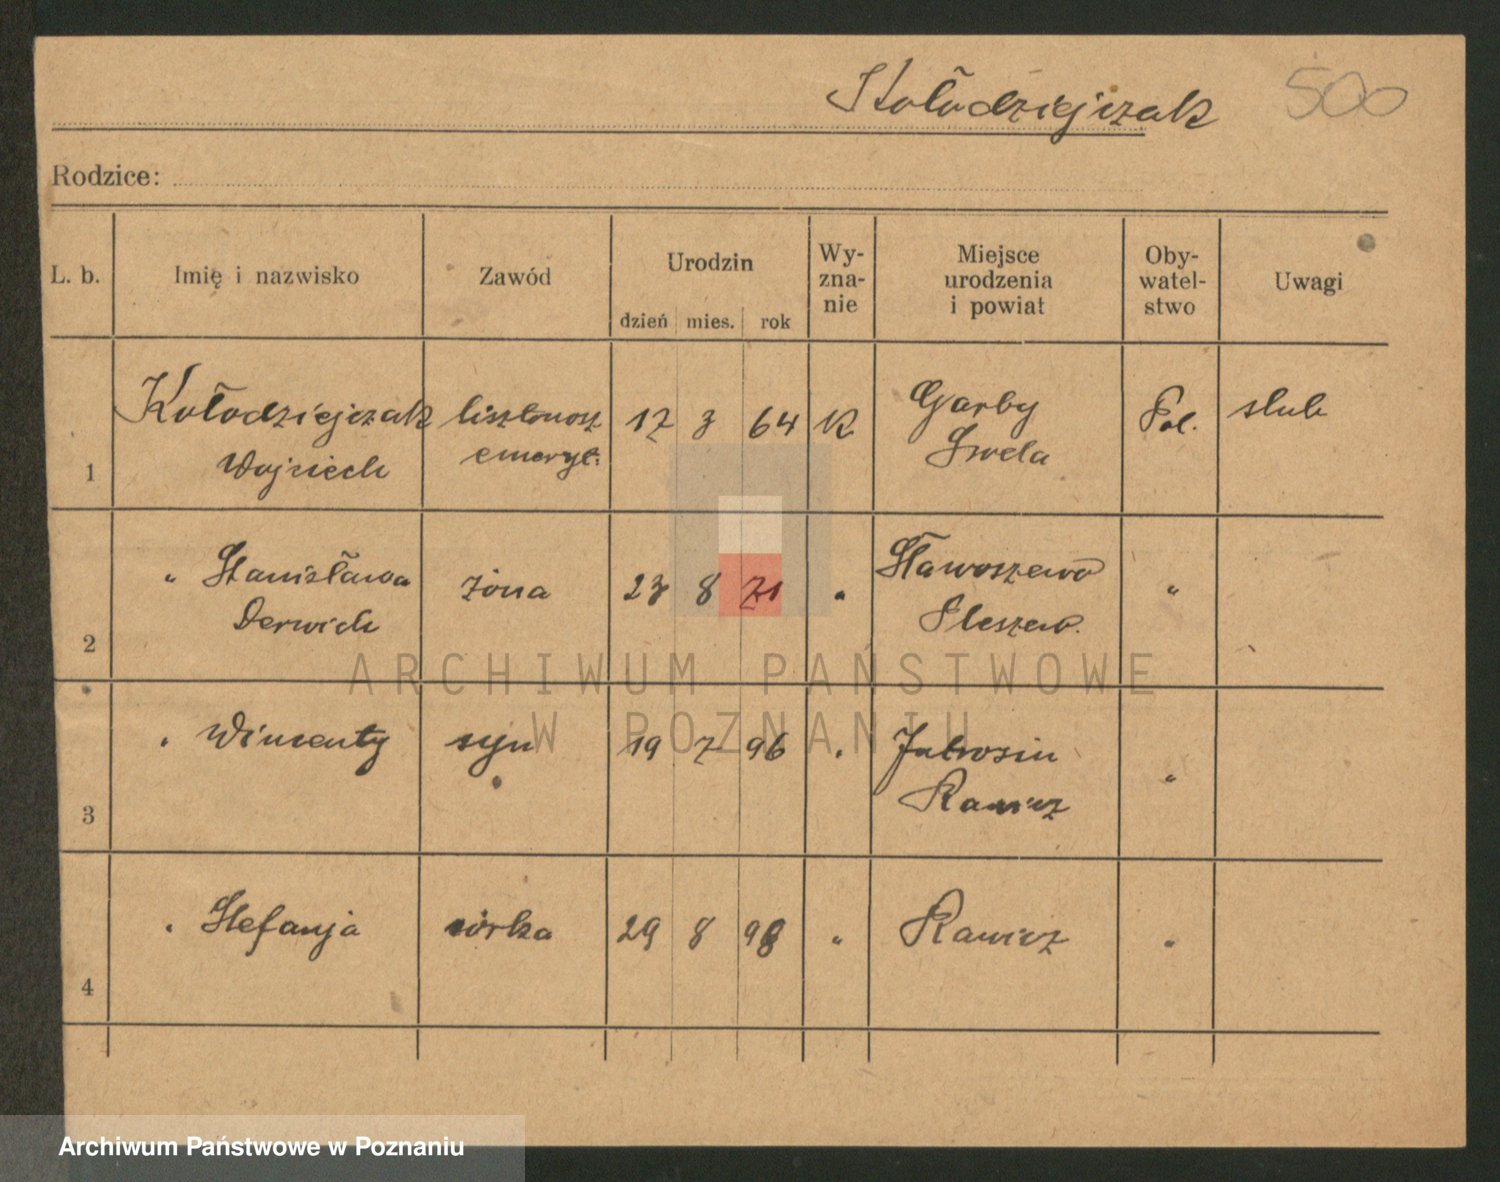 Kołodziejczak 500
Rodzice:
L. b. Imię i nazwisko Zawód Urodzin Wy-zna-nie Miejsce urodzenia i powiat Oby-watel-stwo Uwagi
dzień mies. rok
Kołodziejczak listonosz 17 3 64 K Garby Pol. slub
1 Wojciech emeryt. Sroda
" Stanisława żona 23 8 71 " Sławoszewo "
2 Derwich Pleszew.
" Wincenty syn 19 7 96 " Jutrosin "
3 Rawicz
" Stefanja córka 29 8 98 " Rawicz "
4
ARCHIWUM PAŃSTWOWE
W POZNANIU
Archiwum Państwowe w Poznaniu